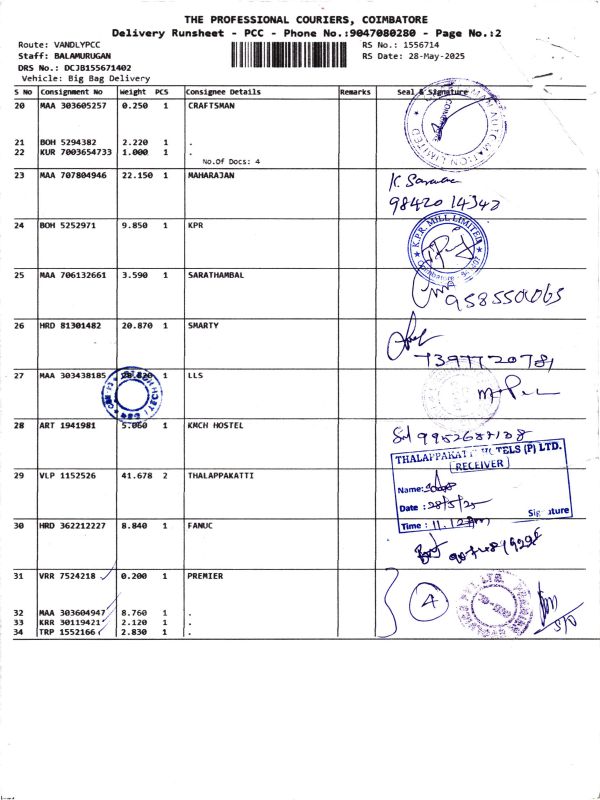 THE PROFESSIONAL COURIERS, COIMBATORE
Delivery Runsheet - PCC - Phone No.:9047080280 - Page No.:2
Route: VANDLYPCC RS No.: 1556714
Staff: BALAMURUGAN RS Date: 28-May-2025
DRS No.: DCJB155671402
Vehicle: Big Bag Delivery
S No Consignment No Weight PCS Consignee Details Remarks Seal & Signature
20 MAA 303605257 0.250 1 CRAFTSMAN
21 BOH 5294382 2.220 1 .
22 KUR 7003654733 1.000 1 .
No.Of Docs: 4
23 MAA 707804946 22.150 1 MAHARAJAN
9842014342
24 BOH 5252971 9.850 1 KPR
K.P.R. MILL LIMITED
25 MAA 706132661 3.590 1 SARATHAMBAL
26 HRD 81301482 20.870 1 SMARTY
7397720781
27 MAA 303438185 1 LLS
28 ART 1941981 5.060 1 KMCH HOSTEL
29 VLP 1152526 41.678 2 THALAPPAKATTI
THALAPPAKATTI HOTELS (P) LTD.
RECEIVER
Name:
Date : 28/5/25
Signature
Time :
30 HRD 362212227 8.840 1 FANUC
31 VRR 7524218 0.200 1 PREMIER
4
32 MAA 303604947 8.760 1 .
33 KRR 30119421 2.120 1 .
34 TRP 1552166 2.830 1 .